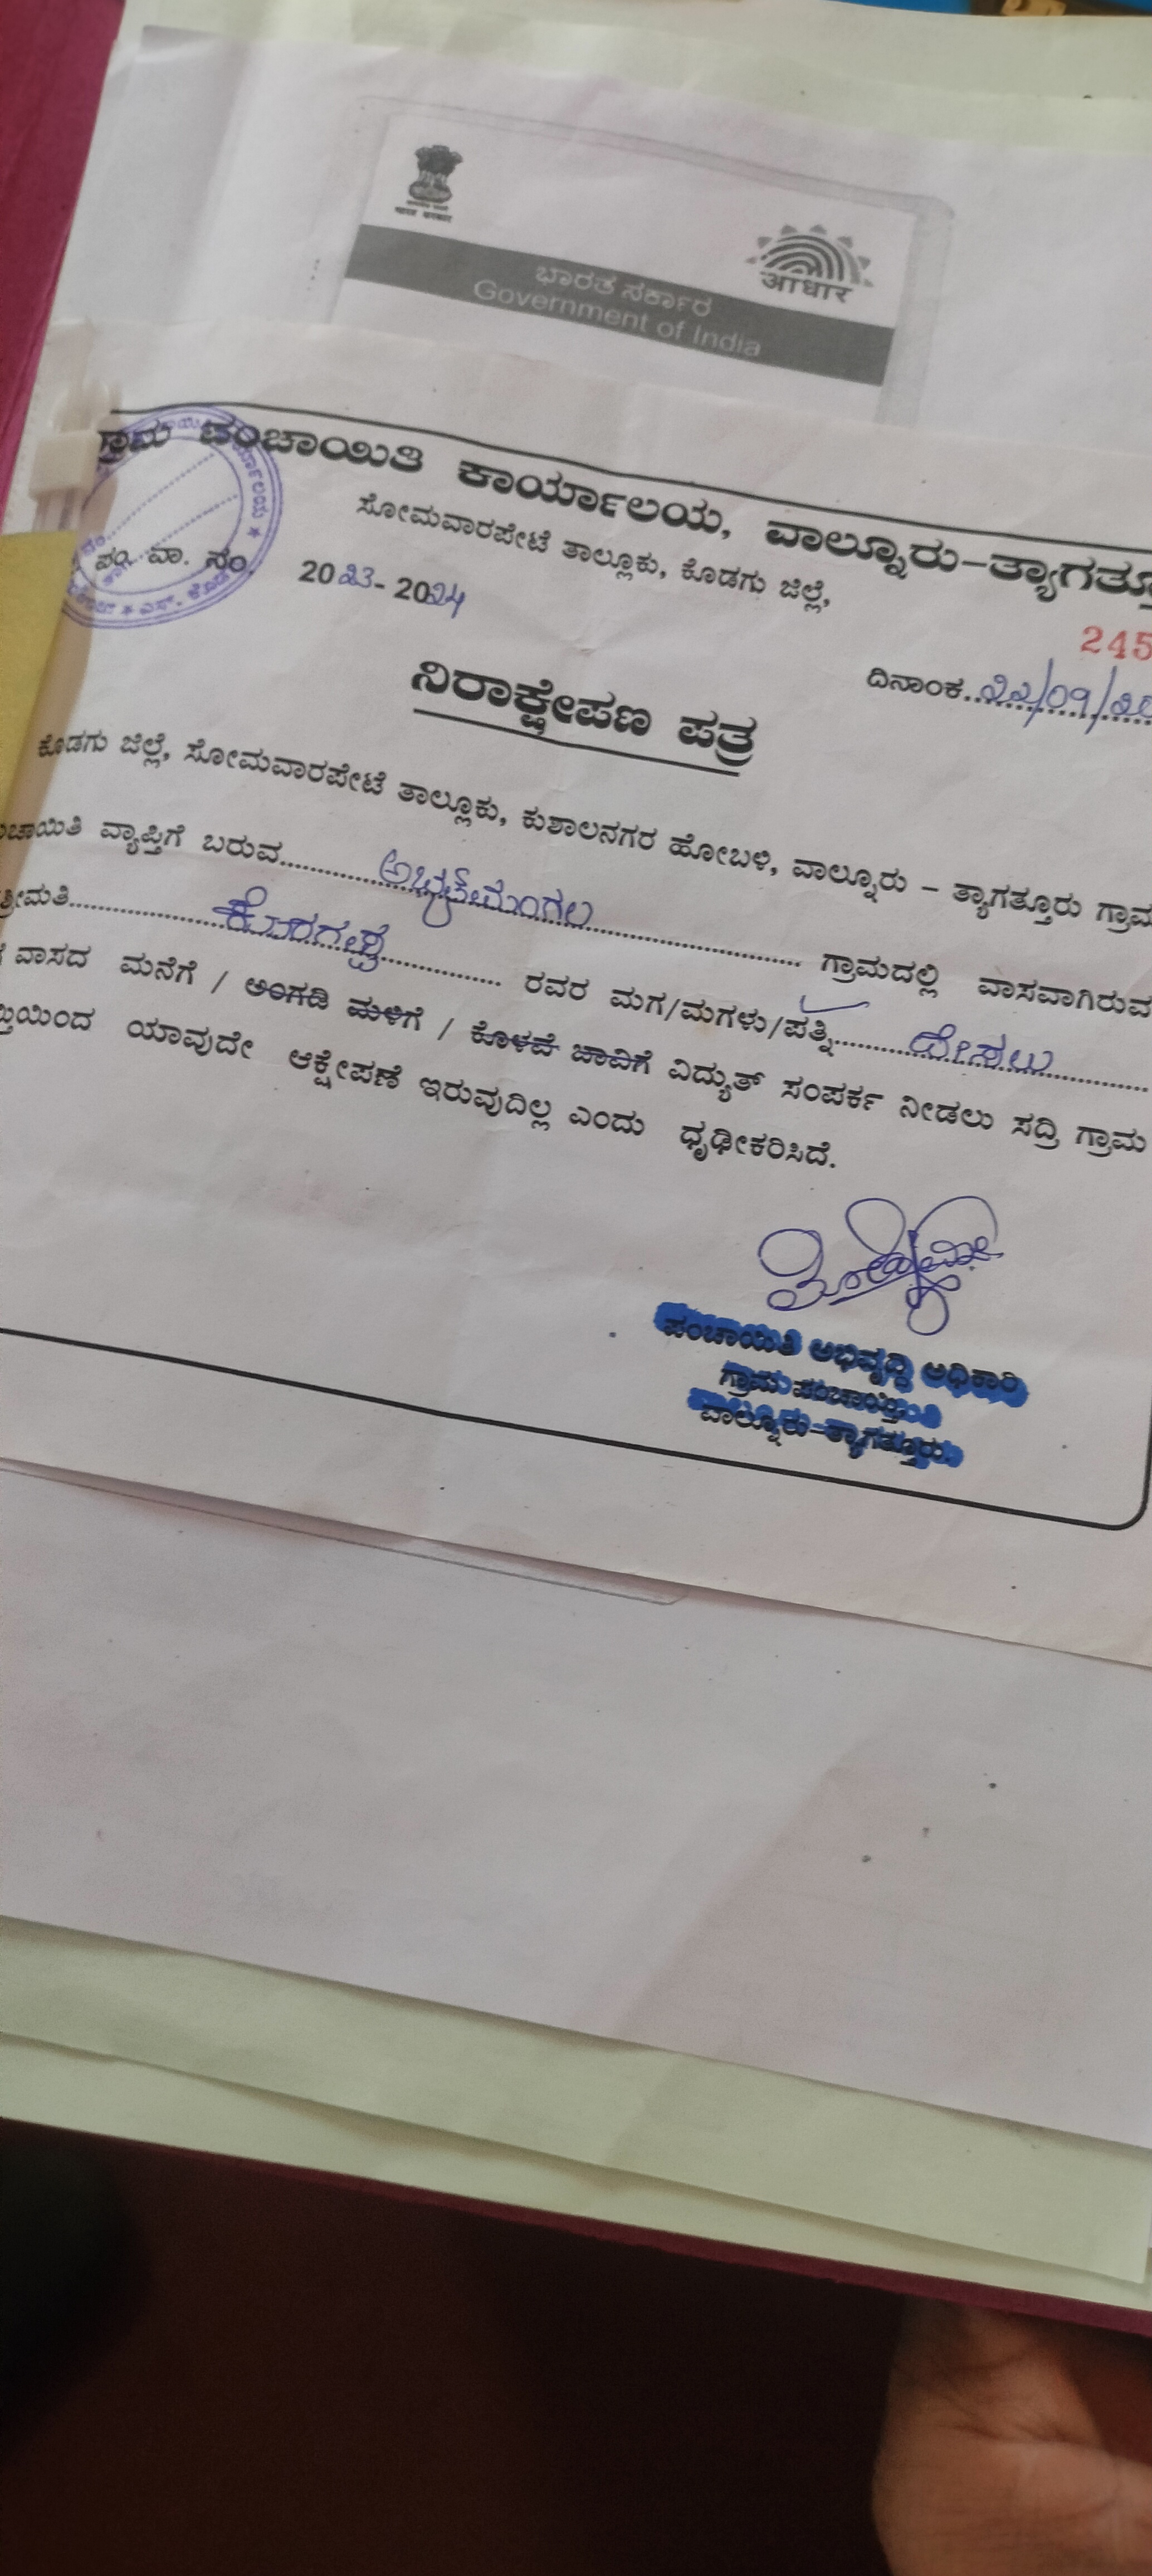 भारत सरकार
आधार
ಭಾರತ ಸರ್ಕಾರ
Government of India
ಗ್ರಾಮ ಪಂಚಾಯಿತಿ ಕಾರ್ಯಾಲಯ, ವಾಲ್ನೂರು-ತ್ಯಾಗತ್ತೂ
ಸೋಮವಾರಪೇಟೆ ತಾಲ್ಲೂಕು, ಕೊಡಗು ಜಿಲ್ಲೆ,
ಪಂ. ವಾ. ಸಂ. 2023-2024
245
ದಿನಾಂಕ..೨೨/೦೧/೨೦
ನಿರಾಕ್ಷೇಪಣ ಪತ್ರ
ಕೊಡಗು ಜಿಲ್ಲೆ, ಸೋಮವಾರಪೇಟೆ ತಾಲ್ಲೂಕು, ಕುಶಾಲನಗರ ಹೋಬಳಿ, ವಾಲ್ನೂರು - ತ್ಯಾಗತ್ತೂರು ಗ್ರಾಮ
ಂಚಾಯಿತಿ ವ್ಯಾಪ್ತಿಗೆ ಬರುವ.....ಅಭ್ಯತ್‌ಮಂಗಲ..... ಗ್ರಾಮದಲ್ಲಿ ವಾಸವಾಗಿರುವ
ಶ್ರೀಮತಿ..... ರವರ ಮಗ/ಮಗಳು/ಪತ್ನಿ.....
ವಾಸದ ಮನೆಗೆ / ಅಂಗಡಿ ಮಳಿಗೆ / ಕೊಳವೆ ಬಾವಿಗೆ ವಿದ್ಯುತ್ ಸಂಪರ್ಕ ನೀಡಲು ಸದ್ರಿ ಗ್ರಾಮ
ತಿಯಿಂದ ಯಾವುದೇ ಆಕ್ಷೇಪಣೆ ಇರುವುದಿಲ್ಲ ಎಂದು ಧೃಢೀಕರಿಸಿದೆ.
ಪಂಚಾಯಿತಿ ಅಭಿವೃದ್ಧಿ ಅಧಿಕಾರಿ
ಗ್ರಾಮ ಪಂಚಾಯಿತಿ
ವಾಲ್ನೂರು-ತ್ಯಾಗತ್ತೂರು.